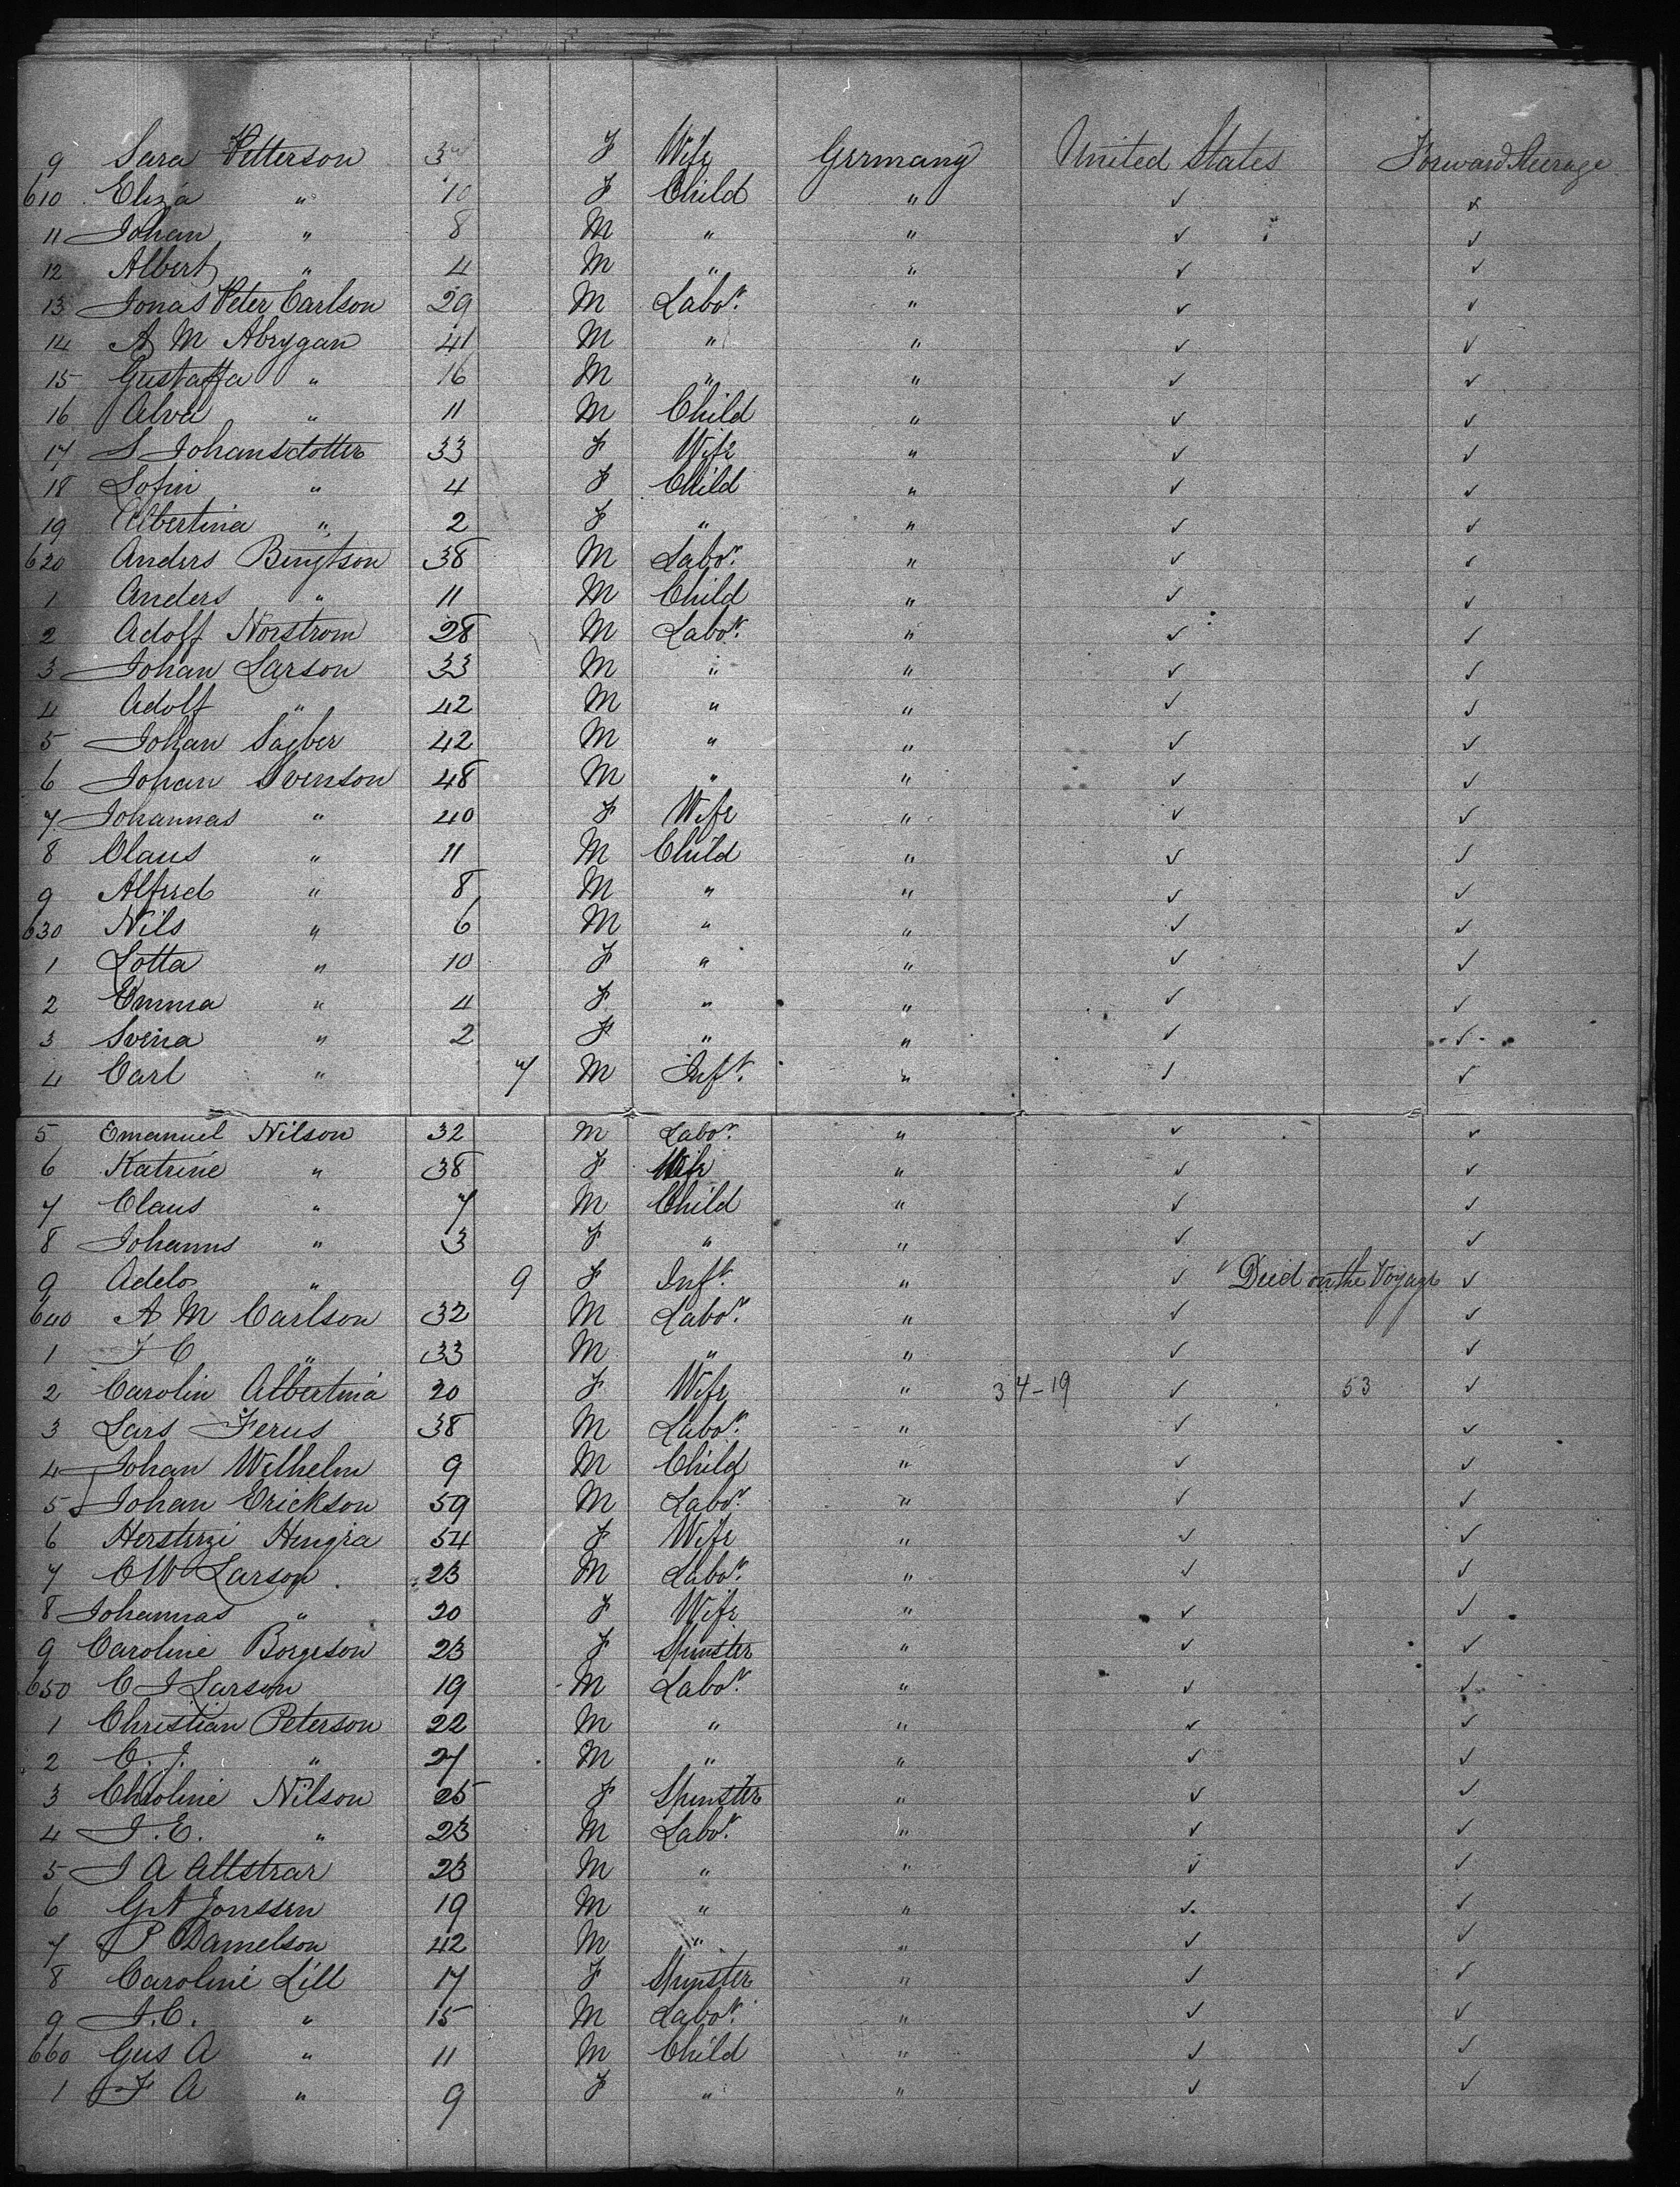 9 Sara Petterson 3 F Wife Germany United States Forward Steerage
610 Eliza " 10 F Child " ✓ ✓
11 Johan " 8 M " " ✓ ✓
12 Albert " 4 M " " ✓ ✓
13 Jonas Peter Carlson 29 M Labor. " ✓ ✓
14 A M Abrygan 41 M " " ✓ ✓
15 Gustaffa " 16 M " " ✓ ✓
16 Alva " 11 M Child " ✓ ✓
17 S Johansdotter 33 F Wife " ✓ ✓
18 Sofin " 4 F Child " ✓ ✓
19 Albertina " 2 F " " ✓ ✓
620 Anders Bengtson 38 M Labor. " ✓ ✓
1 Anders " 11 M Child " ✓ ✓
2 Adolf Norstrom 28 M Labor. " ✓ ✓
3 Johan Larson 33 M " " ✓ ✓
4 Adolf " 42 M " " ✓ ✓
5 Johan 42 M " " ✓ ✓
6 Johan Svenson 48 M " " ✓ ✓
7 Johannas " 40 F Wife " ✓ ✓
8 Claus " 11 M Child " ✓ ✓
9 Alfred " 8 M " " ✓ ✓
630 Nils " 6 M " " ✓ ✓
1 Lotta " 10 F " " ✓ ✓
2 Emma " 4 F " " ✓ ✓
3 Svena " 2 F " " ✓ ✓
4 Carl " 7 M Inft. " ✓ ✓
5 Emanuel Nilson 32 M Labor. " ✓ ✓
6 Katrine " 38 F Wife " ✓ ✓
7 Claus " 7 M Child " ✓ ✓
8 Johanns " 3 F " " ✓ ✓
9 Adelo " 9 F Inft. " ✓ ✓ Died on the Voyage ✓
640 A M Carlson 32 M Labor. " ✓ ✓
1 J C " 33 M " " ✓ ✓
2 Carolin Albertina 20 F Wife " 34-19 ✓ 53 ✓
3 Lars Ferus 38 M Labor. " ✓ ✓
4 Johan Wilhelm 9 M Child " ✓ ✓
5 Johan Erickson 59 M Labor. " ✓ ✓
6 54 F Wife " ✓ ✓
7 C W Larson 23 M Labor. " ✓ ✓
8 Johannas " 20 F Wife " ✓ ✓
9 Caroline Borgeson 23 F Spinster " ✓ ✓
650 C J Larson 19 M Labor. " ✓ ✓
1 Christian Peterson 22 M " " ✓ ✓
2 C. J. " 27 M " " ✓ ✓
3 Nilson 25 F Spinster " ✓ ✓
4 J. E. " 23 M Labor. " ✓ ✓
5 J A Allstrar 23 M " " ✓ ✓
6 G A Jonssen 19 M " " ✓ ✓
7 P Danielson 42 M " " ✓ ✓
8 Caroline Lill 17 F Spinster " ✓ ✓
9 J. C. " 15 M Labor. " ✓ ✓
660 Gus A " 11 M Child " ✓ ✓
1 F A " 9 F " " ✓ ✓